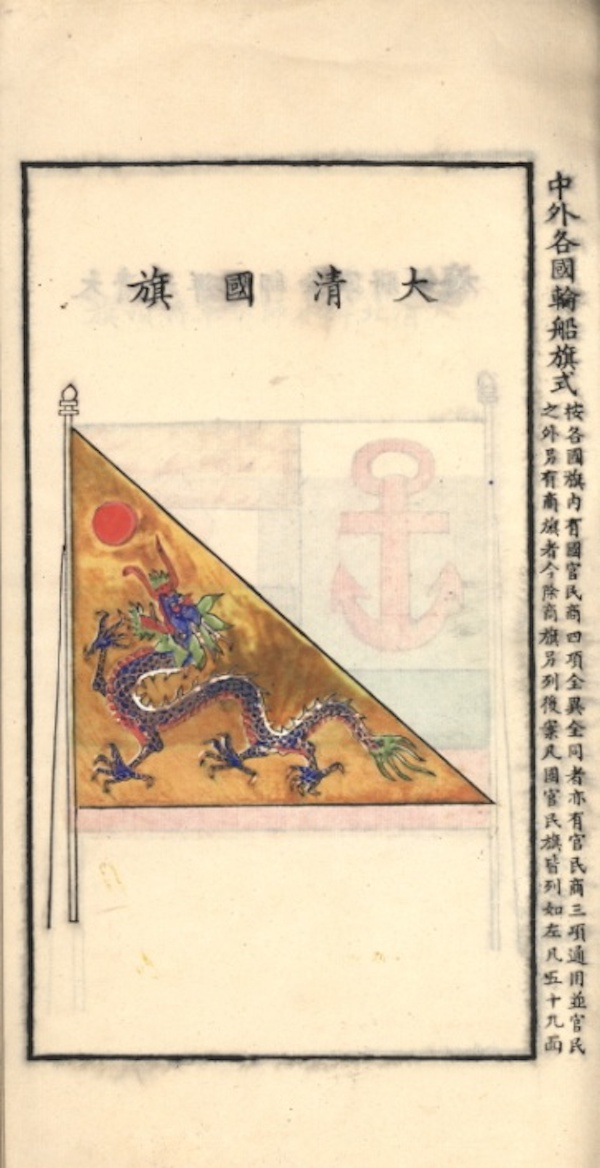 中外各國輪船旗式
按各國旗內有國官民商四項全異全同者亦有官民商三項通用並官民
之外另有商旗者今除商旗另列後案凡國官民旗皆列如左凡五十九面
大清國旗